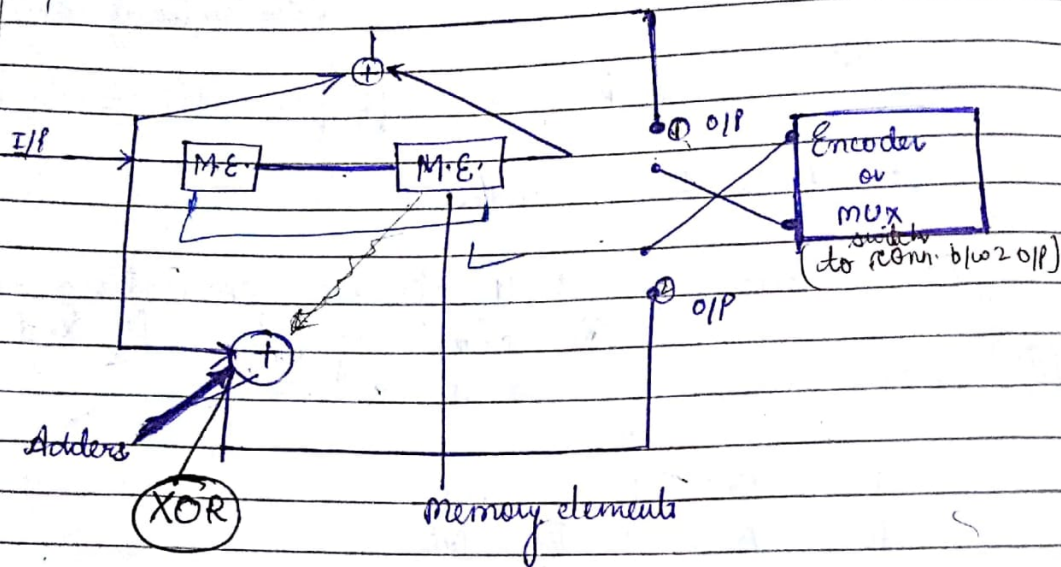 +
I/P
M.E.
M.E.
① O/P
Encoder
or
MUX
switch
(to conn. b/w 2 O/P)
② O/P
+
Adders
XOR
Memory elements